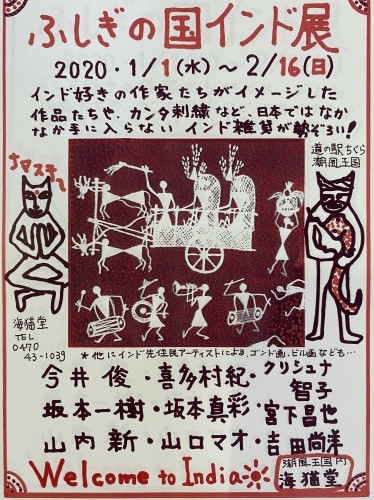 ふしぎの国インド展
2020・1/1(水)～2/16(日)
インド好きの作家たちがイメージした
作品たちや、カンタ刺繍など、日本ではなか
なか手に入らない インド雑貨が勢ぞろい!
道の駅ちくら
潮風王国
ナマステ〜
海猫堂
TEL
0470
43-1039
*他にインド先住民アーティストによる、ゴンド画、ビル画なども…
今井 俊・喜多村紀・クリシュナ智子
坂本一樹・坂本真彩・宮下昌也
山内 新・山口マオ・吉田尚洋
Welcome to India
潮風王国内
海猫堂